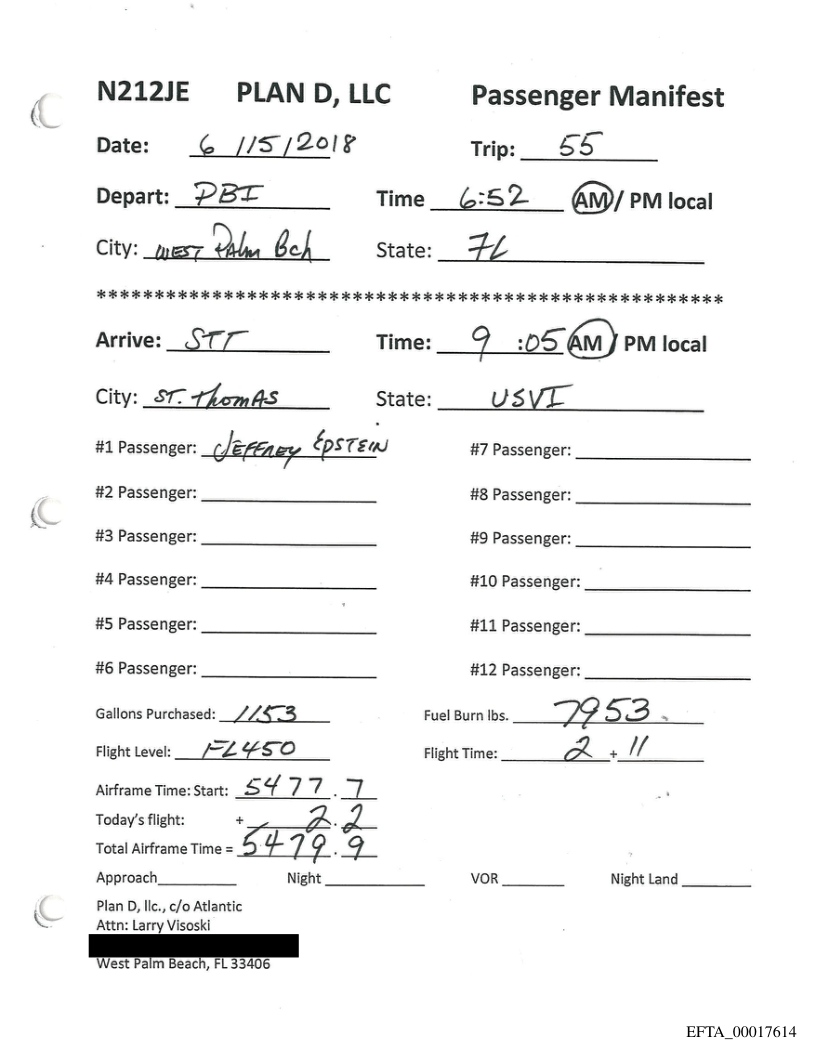 N212JE PLAN D, LLC Passenger Manifest
Date: 6 /15/2018 Trip: 55
Depart: PBI Time 6:52 AM/ PM local
City: WEST PAlm Bch State: FL
******************************************************
Arrive: STT Time: 9 :05 AM / PM local
City: ST. ThomAS State: USVI
#1 Passenger: JEFFREY EPSTEIN #7 Passenger:
#2 Passenger: #8 Passenger:
#3 Passenger: #9 Passenger:
#4 Passenger: #10 Passenger:
#5 Passenger: #11 Passenger:
#6 Passenger: #12 Passenger:
Gallons Purchased: 1153 Fuel Burn lbs. 7953.
Flight Level: FL450 Flight Time: 2 + 11
Airframe Time: Start: 5477.7
Today's flight: + 2.2
Total Airframe Time = 5479.9
Approach Night VOR Night Land
Plan D, llc., c/o Atlantic
Attn: Larry Visoski
West Palm Beach, FL 33406
EFTA_00017614